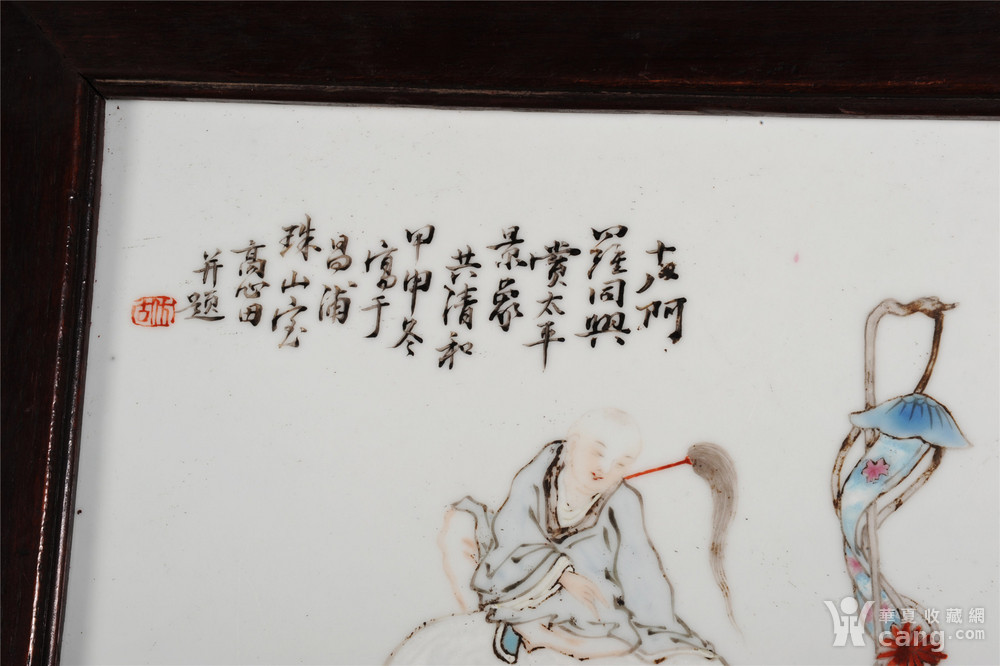 十八阿
羅同興
賞太平
景象
共清和
甲申冬
寫于
昌浦
珠山客
高心田
并题
華夏收藏網
cang.com